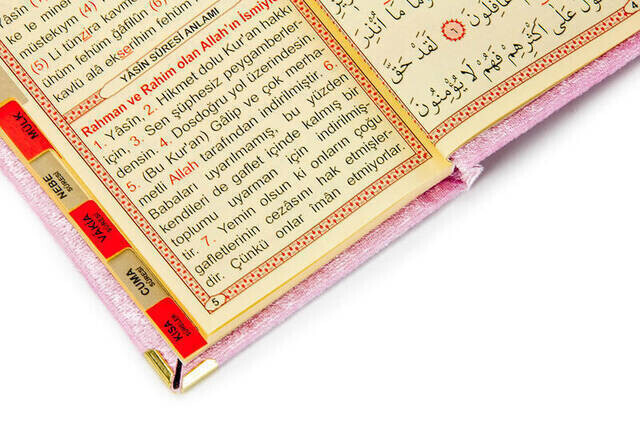 Yâsîn
ke le minel
müstekıym (4)
(5) Li tünzira kavmen
ühüm fehüm ğâfilûn (6)
kavlü alâ ekserihim fehüm
YÂSÎN SÛRESİ ANLAMI
Rahman ve Rahim olan Allah'ın ismiyle
1. Yâsîn, 2. Hikmet dolu Kur'an hakkı
için, 3. Sen şüphesiz peygamberler
densin. 4. Dosdoğru yol üzerindesin.
5. (Bu Kur'an) Gâlip ve çok merha-
metli Allah tarafından indirilmiştir. 6.
Babaları uyarılmamış, bu yüzden
kendileri de gaflet içinde kalmış bir
toplumu uyarman için indirilmiş-
tir. 7. Yemin olsun ki onların çoğu
gafletlerinin cezasını hak etmişler-
dir. Çünkü onlar imân etmiyorlar.
5
مَا أُنْذِرَ
غَافِلُونَ ٦ لَقَدْ حَقَّ
الْقَوْلُ عَلَى أَكْثَرِهِمْ فَهُمْ لَا يُؤْمِنُونَ
MÜLK
NEBE SÛRESİ
VÂKIA SÛRESİ
CUMA SÛRESİ
KISA SÛRELER